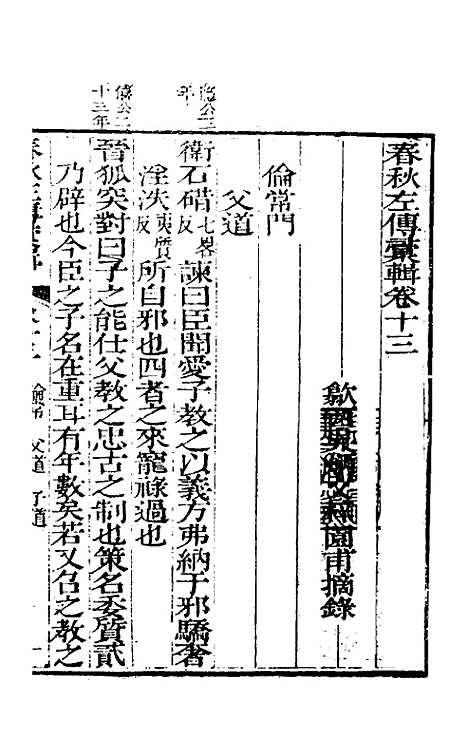 春秋左傳彙輯卷十三
歙 園甫摘錄
倫常門
父道
隱公三年
衛石碏七畧反諫曰臣聞愛子教之以義方弗納于邪驕奢
淫泆夷質反所自邪也四者之來寵祿過也
僖公二十三年
晉狐突對曰子之能仕父教之忠古之制也策名委質貳
乃辟也今臣之子名在重耳有年數矣若又召之教之
父道 子道